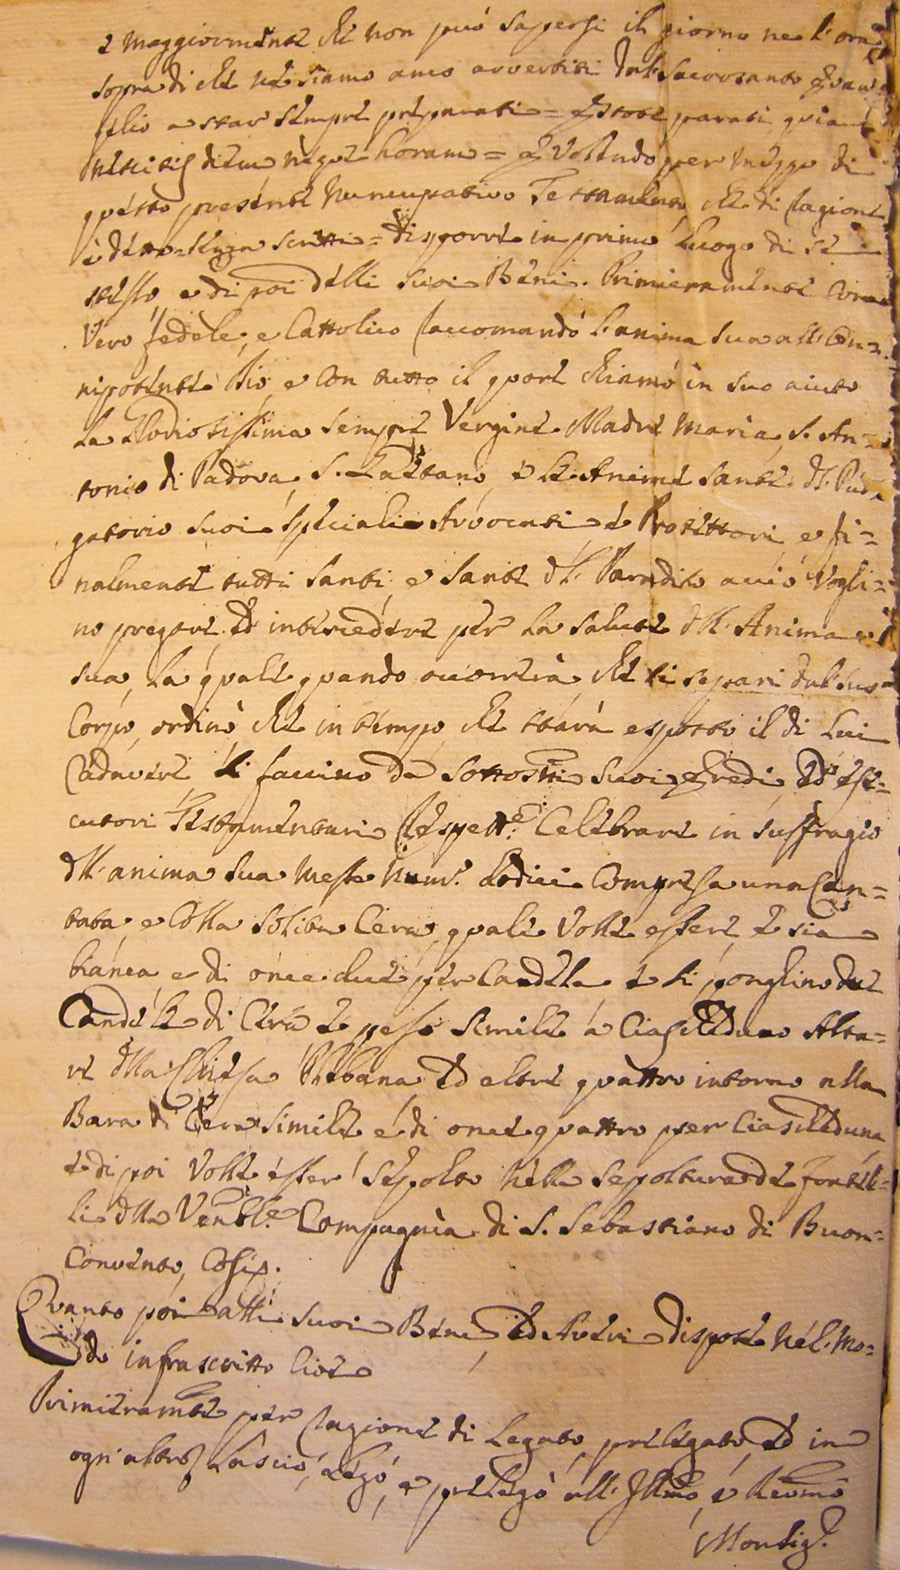 e maggiormente che non può sapersi il giorno ne l'ora
sopra di che ne siamo anco avvertiti dal Sacrosanto Evan
gelio a star sempre preparati = Estote parati quia
nescitis diem neque horam = E volendo per mezzo di
questo presente Nuncupativo Testamento che di ragione
è detto senza scritti = disporre in primo luogo di se
stesso e di poi delli suoi Beni. Primieramente come
Vero fedele, e Cattolico raccomandò l'anima sua all'On=
nipotente Dio, e con tutto il quore chiamò in suo aiuto
la Gloriosissima sempre Vergine Madre Maria, S. An=
tonio di Padova, S. Gaetano, e le Anime Sante del Pur
gatorio suoi speciali Avvocati e Protettori, e fi=
nalmente tutti Santi, e Sante del Paradiso acciò vogli=
no pregare, ed intercedere per la salute dell'Anima
sua, la quale quando occorrerà, che si separi dal suo
Corpo, ordinò che in tempo che starà esposto il di lui
Cadavere si faccino da sottoscritti suoi Eredi ed ese=
cutori Testamentari respett.e Celebrare in suffragio
dell'anima sua Messe num.o dodici Compresa una Can=
tata e colla solita Cera, quale volle essere, e sia
bianca e di once due per Candela e si ponghino due
Candele di Cera e peso simile a ciascheduno Alta=
re della Chiesa Plebana ed altre quattro intorno alla
Bara di Cera simile e di once quattro per ciascheduna
e di poi volle esser sepolto nella sepoltura de fratel=
li della Ven.ble Compagnia di S. Sebastiano di Buon=
Convento, Cosi p.
Quanto poi alli suoi Beni, ed Averi dispose nel Mo=
do infrascritto cioè
Primieramte per ragione di Legato, prelegato, ed in
ogn'altro Lasciò, legò, e prelegò all'Illmo, e Revmo
Monsig.r